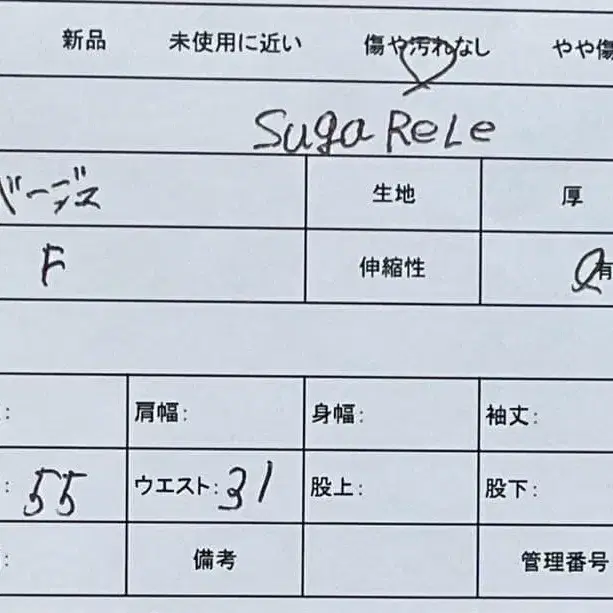 新品 未使用に近い 傷や汚れなし やや傷
Suga ReLe
生地 厚
F 伸縮性 有
: 肩幅: 身幅: 袖丈:
: 55 ウエスト: 31 股上: 股下:
: 備考 管理番号